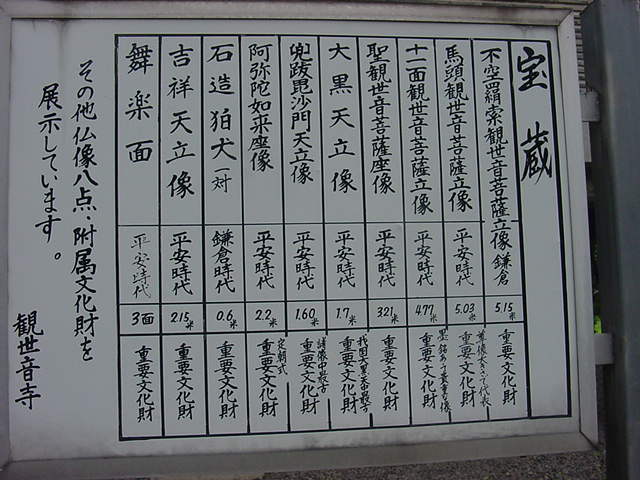 宝蔵
不空羂索観世音菩薩立像 鎌倉 5.15米 重要文化財
馬頭観世音菩薩立像 平安時代 5.03米 重要文化財
十一面観世音菩薩立像 平安時代 4.77米 重要文化財
聖観世音菩薩座像 平安時代 321米 重要文化財
大黒天立像 平安時代 1.7米 重要文化財
兜跋毘沙門天立像 平安時代 1.60米 重要文化財
阿弥陀如来座像 平安時代 2.2米 定朝式 重要文化財
石造狛犬一対 鎌倉時代 0.6米 重要文化財
吉祥天立像 平安時代 215米 重要文化財
舞楽面 平安時代 3面 重要文化財
その他仏像八点・附属文化財を
展示しています。
観世音寺